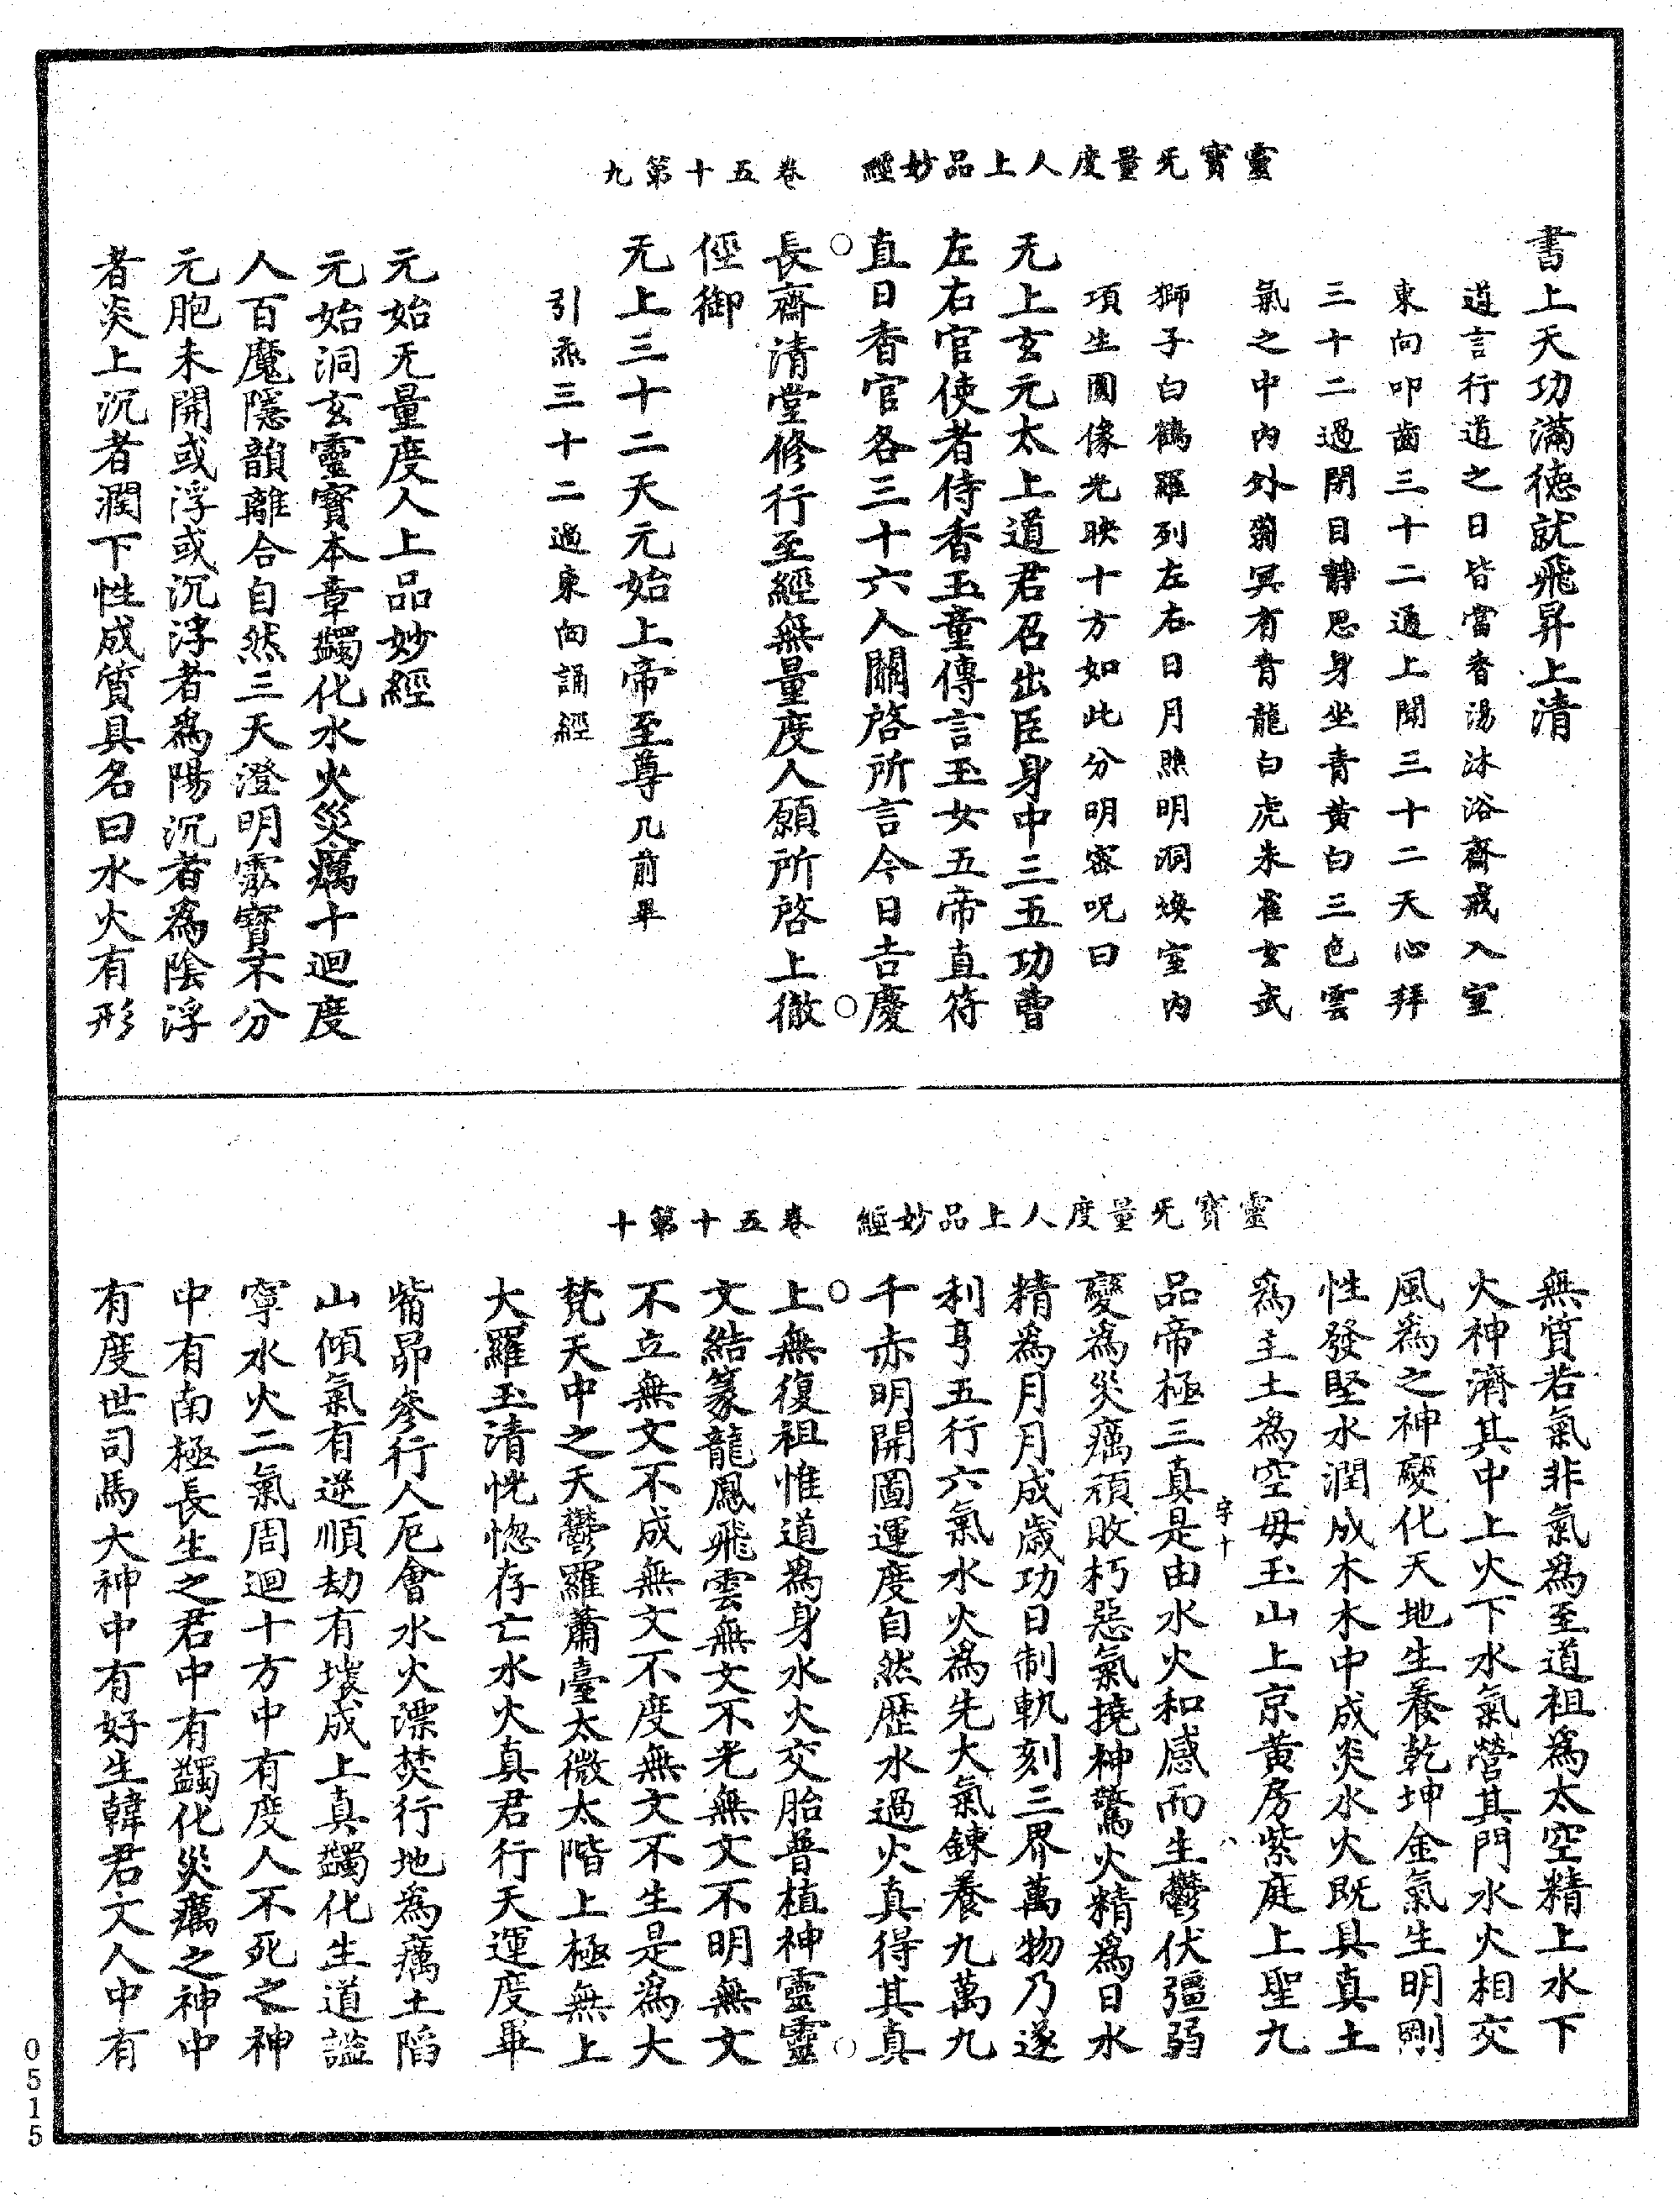 靈寶无量度人上品妙經 卷五十第九
書上天功滿德就飛昇上清
道言行道之日皆當香湯沐浴齋戒入室
東向叩齒三十二通上聞三十二天心拜
三十二過閉目靜思身坐青黃白三色雲
氣之中內外蓊冥有青龍白虎朱雀玄武
獅子白鶴羅列左右日月照明洞煥室內
項生圓像光映十方如此分明密呪曰
无上玄元太上道君召出臣身中三五功曹
左右官使者侍香玉童傳言玉女五帝直符
直日香官各三十六人關啓所言今日吉慶
長齋清堂修行至經無量度人願所啓上徹
徑御
无上三十二天元始上帝至尊几前畢
引炁三十二過東向誦經
元始无量度人上品妙經
元始洞玄靈寶本章蠲化水火災癘十迴度
人百魔隱韻離合自然三天澄明靈寶不分
元胞未開或浮或沉浮者爲陽沉者爲陰浮
者炎上沉者潤下性成質具名曰水火有形
靈寶无量度人上品妙經 卷五十第十
無質若氣非氣爲至道祖爲太空精上水下
火神濟其中上火下水氣營其門水火相交
風爲之神變化天地生養乾坤金氣生明剛
性發堅水潤成木木中成炎水火既具真土
爲主土爲空毋玉山上京黃房紫庭上聖九
字十
品帝極三真是由水火和感而生鬱伏彊弱
變爲災癘頑敗朽惡氣撓神驚火精爲日水
精爲月月成歲功日制軌刻三界萬物乃遂
利亨五行六氣水火爲先大氣鍊養九萬九
千赤明開圖運度自然歷水過火真得其真
上無復祖惟道爲身水火交胎普植神靈靈
文結篆龍鳳飛雲無文不光無文不明無文
不立無文不成無文不度無文不生是爲大
梵天中之天鬱羅蕭臺太微太階上極無上
大羅玉清恍惚存亡水火真君行天運度畢
觜昴參行人厄會水火漂焚行地爲癘土陷
山傾氣有逆順劫有壞成上真蠲化生道謐
寧水火二氣周迴十方中有度人不死之神
中有南極長生之君中有蠲化災癘之神中
有度世司馬大神中有好生韓君丈人中有
0515